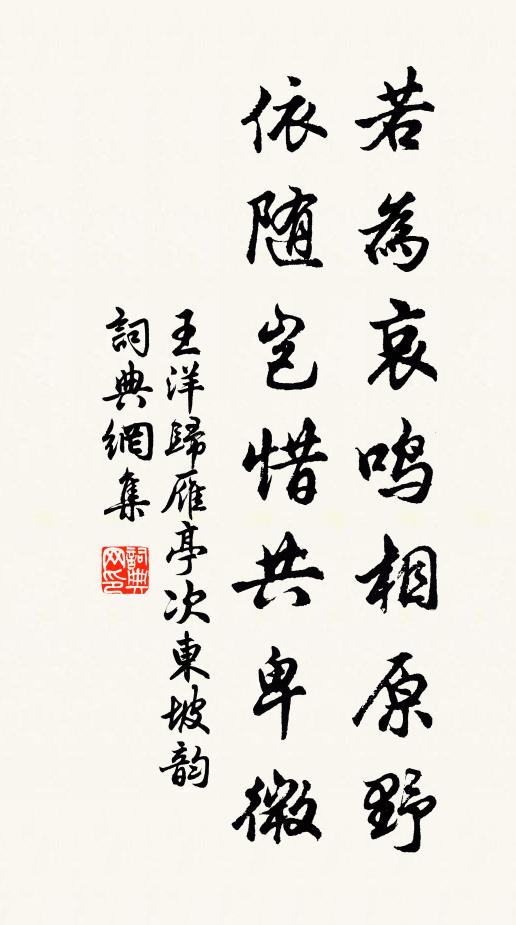 若為哀鳴相原野
依随岂惜共卑微
王洋歸雁亭次東坡韵
詞典網集
詞典网印